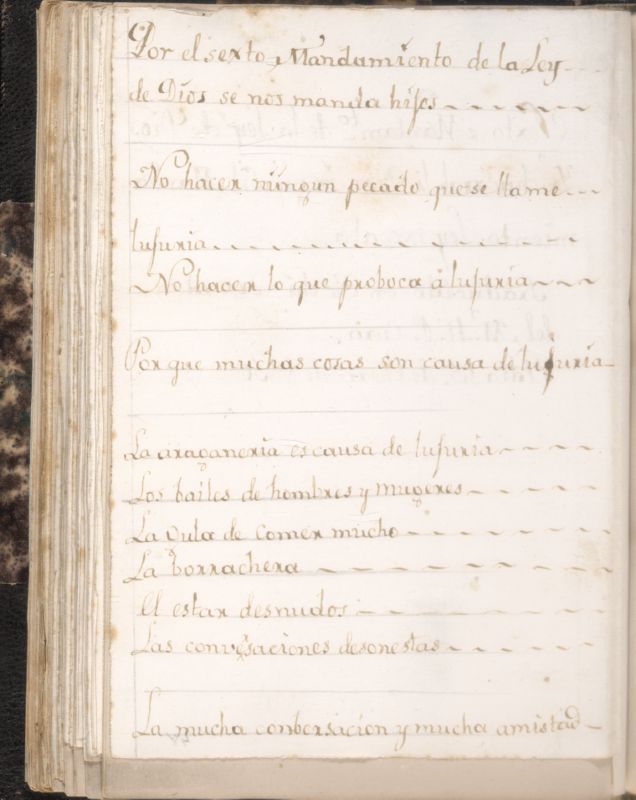 Por el sexto Mandamiento de la Ley
de Dios se nos manda hijos
No hacer ningun pecado que se llame
lujuria
No hacer lo que proboca á lujuria
Por que muchas cosas son causa de lujuria
La araganeria es causa de lujuria
Los bailes de hombres y mugeres
La Gula de comer mucho
La borrachera
El estar desnudos
Las convesaciones desonestas
La mucha conbersacion y mucha amistad